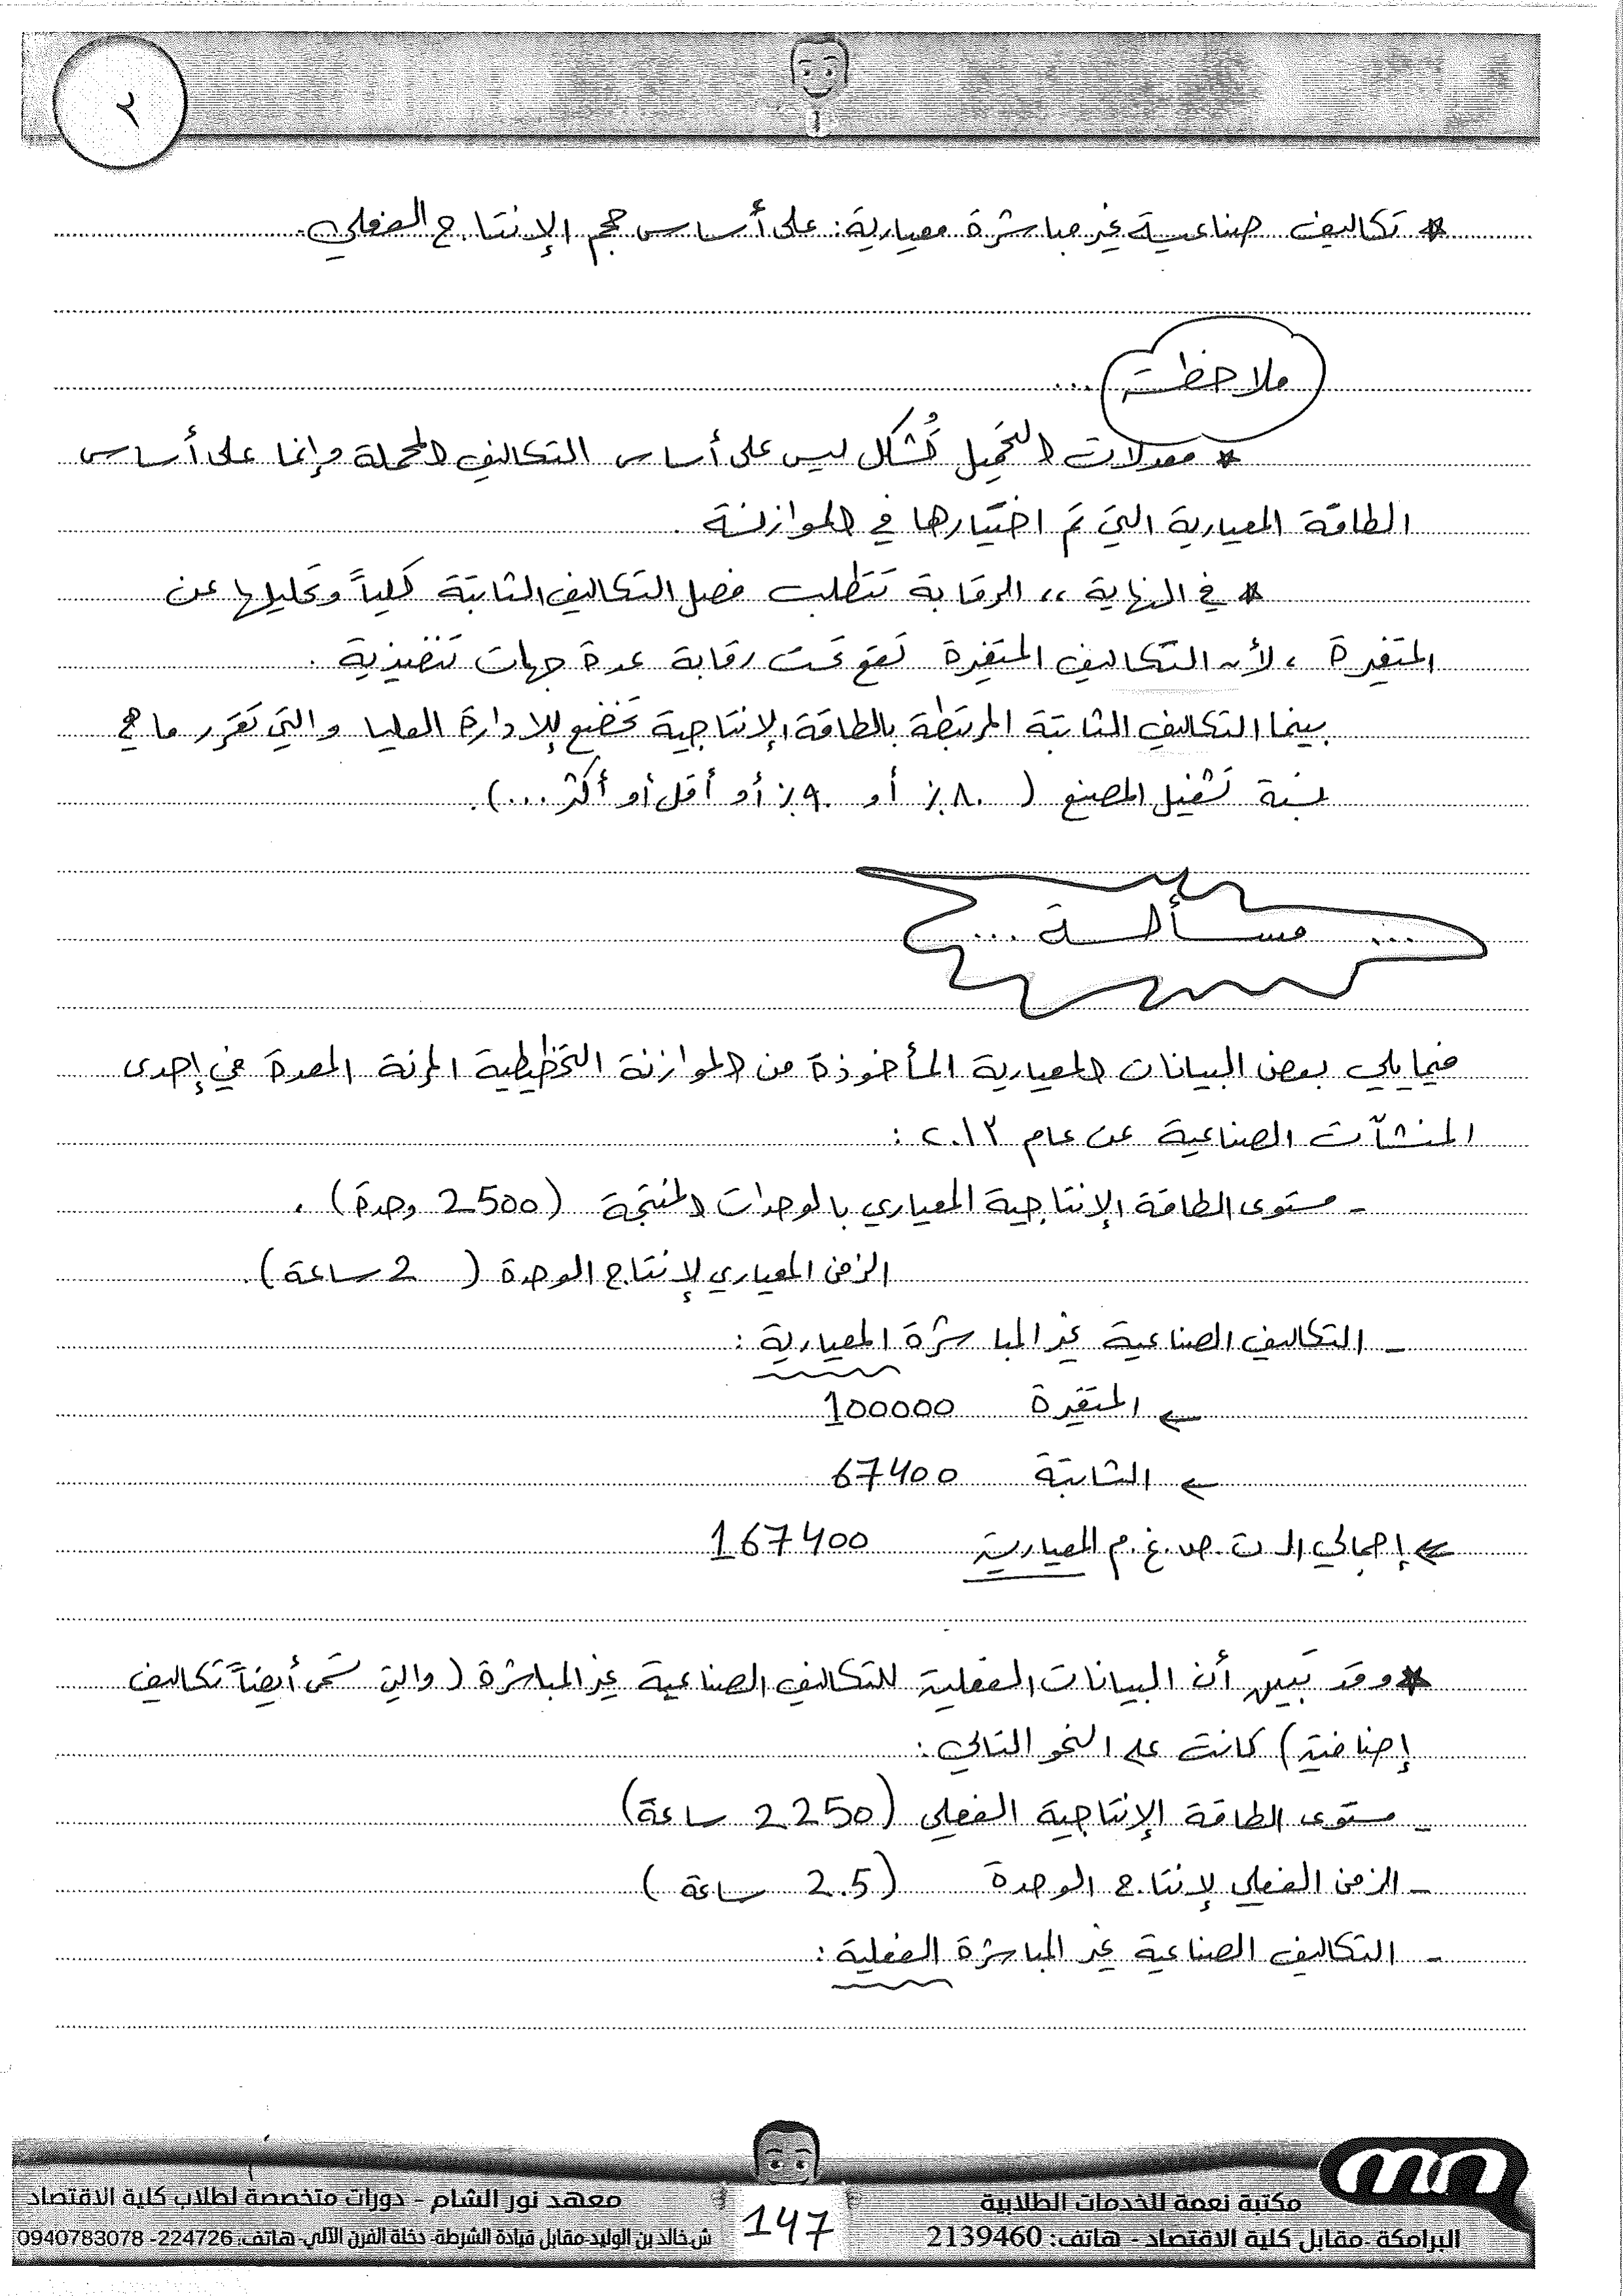 ٢
* تكاليف صناعية غير مباشرة معيارية: على أساس حجم الإنتاج الفعلي.
ملاحظة ...
* معدلات التحميل تُشكل ليس على أساس التكاليف المحملة وإنما على أساس
الطاقة المعيارية التي تم اختيارها في الموازنة.
* في النهاية ،، الرقابة تتطلب فصل التكاليف الثابتة كلياً وتحليلها عن
المتغيرة ، لأن التكاليف المتغيرة تقع تحت رقابة عدة جهات تنفيذية .
بينما التكاليف الثابتة المرتبطة بالطاقة الإنتاجية تخضع للإدارة العليا والتي تقرر ما هي
نسبة تشغيل المصنع ( ٨٠٪ أو ٩٠٪ أو أقل أو أكثر ...).
... مسألة ...
فيما يلي بعض البيانات المعيارية المأخوذة من الموازنة التخطيطية المرنة المعدة في إحدى
المنشآت الصناعية عن عام ٢٠١٣ :
- مستوى الطاقة الإنتاجية المعياري بالوحدات المنتجة (2500 وحدة) .
الزمن المعياري لإنتاج الوحدة ( 2 ساعة) .
- التكاليف الصناعية غير المباشرة المعيارية :
← المتغيرة 100000
← الثابتة 67400
⇐ إجمالي الـ ت.ص.غ.م المعيارية 167400
* وقد تبين أن البيانات الفعلية للتكاليف الصناعية غير المباشرة (والتي تسمى أيضاً تكاليف
إضافية) كانت على النحو التالي :
- مستوى الطاقة الإنتاجية الفعلي (2250 ساعة)
- الزمن الفعلي لإنتاج الوحدة (2.5 ساعة)
- التكاليف الصناعية غير المباشرة الفعلية :
مكتبة نعمة للخدمات الطلابية
البرامكة -مقابل كلية الاقتصاد - هاتف: 2139460
147
معهد نور الشام - دورات متخصصة لطلاب كلية الاقتصاد
ش خالد بن الوليد-مقابل قيادة الشرطة- دخلة الفرن الآلي- هاتف: 224726- 0940783078